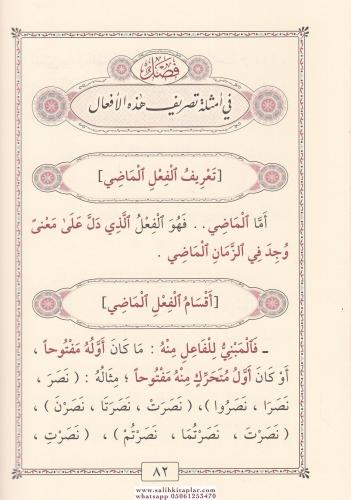 فَصْلٌ
في أمثلة تصريف هذه الأفعال
[تَعْرِيفُ الْفِعْلِ الْمَاضِي]
أَمَّا الْمَاضِي . . فَهُوَ الْفِعْلُ الَّذِي دَلَّ عَلَىٰ مَعْنىً
وُجِدَ فِي الزَّمَانِ الْمَاضِي .
[أَقْسَامُ الْفِعْلِ الْمَاضِي]
ـ فَالْمَبْنِيُّ لِلْفَاعِلِ مِنْهُ : مَا كَانَ أَوَّلُهُ مَفْتُوحاً ،
أَوْ كَانَ أَوَّلُ مُتَحَرِّكٍ مِنْهُ مَفْتُوحاً ؛ مِثَالُهُ : ( نَصَرَ ،
نَصَرَا ، نَصَرُوا ) ، ( نَصَرَتْ ، نَصَرَتَا ، نَصَرْنَ ) ،
( نَصَرْتَ ، نَصَرْتُمَا ، نَصَرْتُمْ ) ، ( نَصَرْتِ ،
٨٢
www.salihkitaplar.com
whatsapp 05061255470